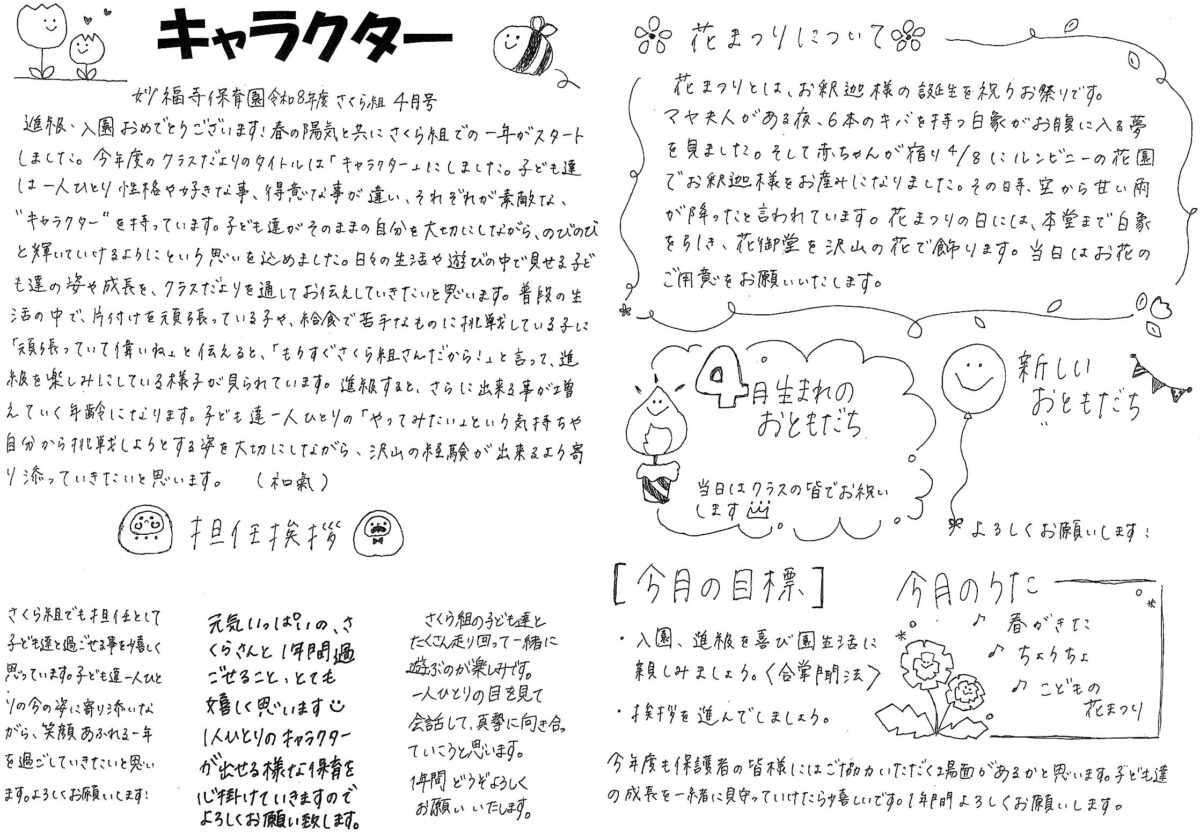 キャラクター
妙福寺保育園令和8年度 さくら組 4月号
進級・入園おめでとうございます!春の陽気と共にさくら組での一年がスタート
しました。今年度のクラスだよりのタイトルは「キャラクター」にしました。子ども達
は一人ひとり性格や好きな事、得意な事が違い、それぞれが素敵な、
"キャラクター"を持っています。子ども達がそのままの自分を大切にしながら、のびのび
と輝いていけるようにという思いを込めました。日々の生活や遊びの中で見せる子ど
も達の姿や成長を、クラスだよりを通してお伝えしていきたいと思います。普段の生
活の中で、片付けを頑張っている子や、給食で苦手なものに挑戦している子に
「頑張っていて偉いね」と伝えると、「もうすぐさくら組さんだから!」と言って、進
級を楽しみにしている様子が見られています。進級すると、さらに出来る事が増
えていく年齢になります。子ども達一人ひとりの「やってみたい」という気持ちや
自分から挑戦しようとする姿を大切にしながら、沢山の経験が出来るよう寄
り添っていきたいと思います。 (和氣)
担任挨拶
さくら組でも担任として
子ども達と過ごせる事を嬉しく
思っています。子ども達一人ひと
りの今の姿に寄り添いな
がら、笑顔あふれる一年
を過ごしていきたいと思い
ます。よろしくお願いします!
元気いっぱいの、さ
くらさんと1年間過
ごせること、とても
嬉しく思います
1人ひとりのキャラクター
が出せる様な保育を
心掛けていきますので
よろしくお願い致します。
さくら組の子ども達と
たくさん走り回って一緒に
遊ぶのが楽しみです。
一人ひとりの目を見て
会話して、真摯に向き合っ
ていこうと思います。
1年間どうぞよろしく
お願いいたします。
花まつりについて
花まつりとは、お釈迦様の誕生を祝うお祭りです。
マヤ夫人がある夜、6本のキバを持つ白象がお腹に入る夢
を見ました。そして赤ちゃんが宿り4/8にルンビニーの花園
でお釈迦様をお産みになりました。その時、空から甘い雨
が降ったと言われています。花まつりの日には、本堂まで白象
を引き、花御堂を沢山の花で飾ります。当日はお花の
ご用意をお願いいたします。
4月生まれの
おともだち
当日はクラスの皆でお祝い
します
新しい
おともだち
よろしくお願いします!
[今月の目標]
・入園、進級を喜び園生活に
親しみましょう。〈合掌聞法〉
・挨拶を進んでしましょう。
今月のうた
♪ 春がきた
♪ ちょうちょ
♪ こどもの
花まつり
今年度も保護者の皆様にはご協力いただく場面があるかと思います。子ども達
の成長を一緒に見守っていけたら嬉しいです。1年間よろしくお願いします。